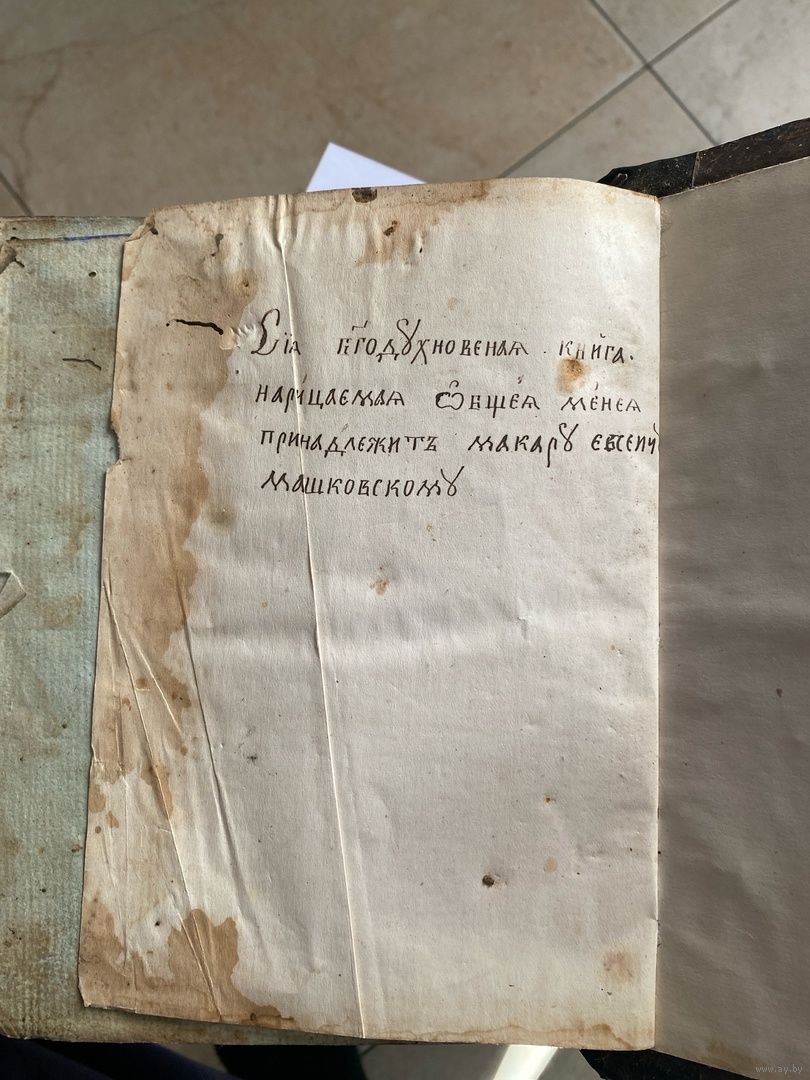 Сїѧ бг҃одꙋхновеная книга.
нари́цаемая Ѻ҆бщеѧ ме́нея
принадлежитъ макарꙋ евсеичꙋ
машковскомꙋ
www.ay.by